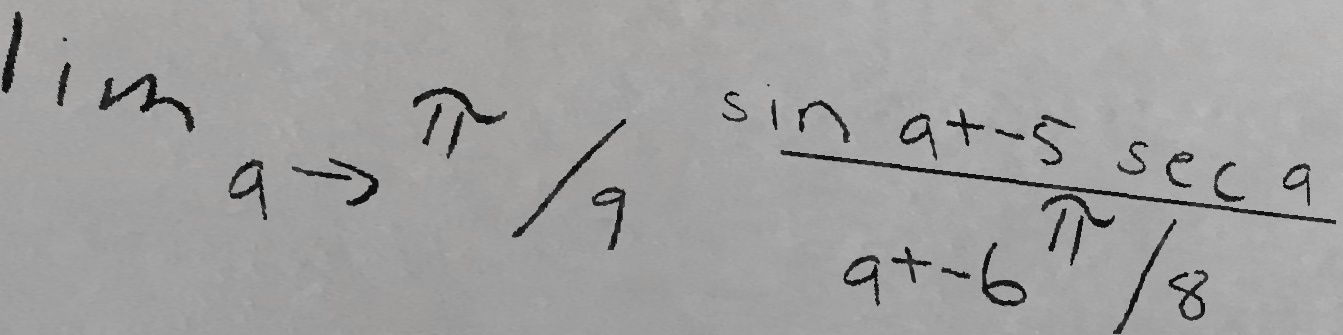 lim a→π/9 \frac{sin a+-5 sec a}{a+-6π/8}